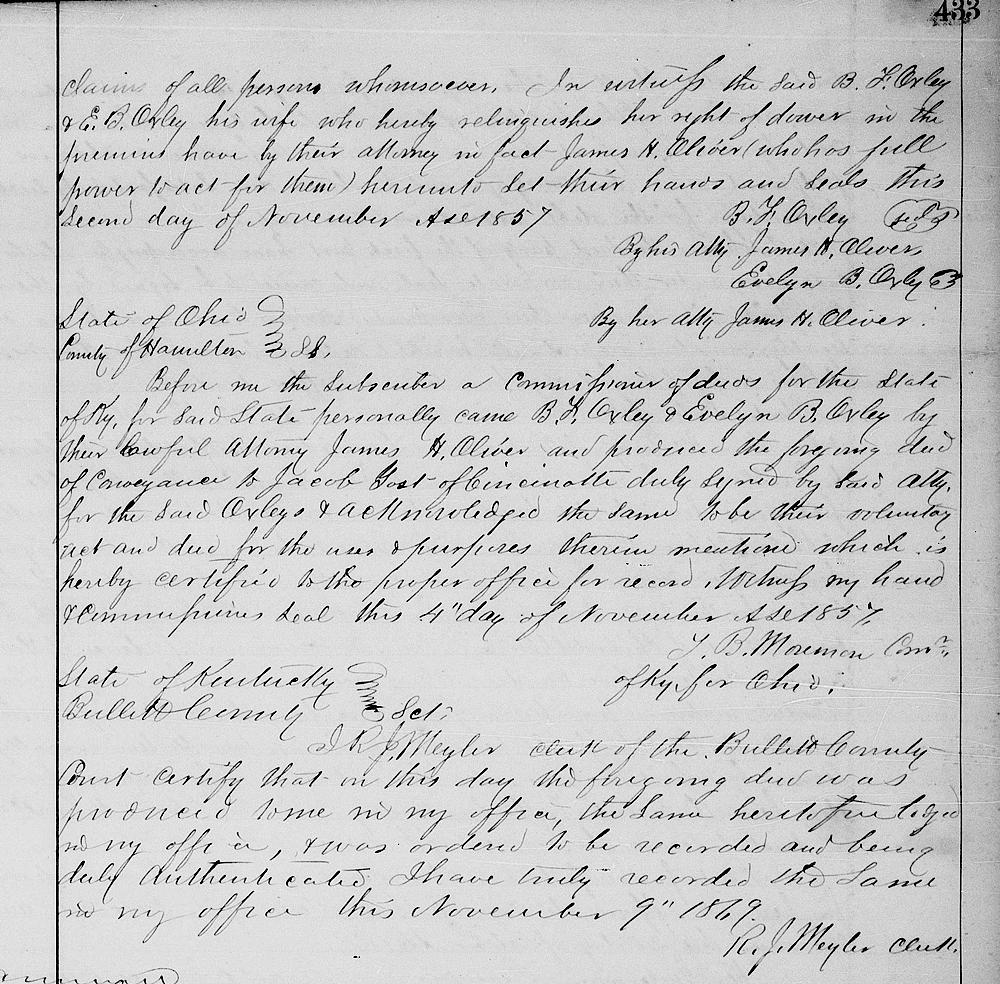 433
claims of all persons whomsoever. In witness the said B. F. Oxley
& E. B. Oxley his wife who hereby relinquishes her right of dower in the
premises have by their attorney in fact James H. Oliver (who has full
power to act for them) hereunto set their hands and seals this
second day of November A.D. 1857 B. F. Oxley
By his Atty. James H. Oliver
Evelyn B. Oxley
By her Atty James H. Oliver.
State of Ohio
County of Hamilton SS.
Before me the Subscriber a Commissioner of deeds for the State
of Ky. for said State personally came B. F. Oxley & Evelyn B. Oxley by
their lawful Attorney James H. Oliver and produced the foregoing deed
of Conveyance to Jacob Yost of Cincinatti duly signed by said Atty.
for the said Oxleys & acknowledged the same to be their voluntary
act and deed for the uses & purposes therein mentioned which is
hereby certified to the proper office for record. Witness my hand
& Commissioners Seal this 4" day of November A.D. 1857.
T. B. Moreman Comr.
of Ky. for Ohio.
State of Kentucky
Bullitt County Sct.
I R. J. Meyler clerk of the Bullitt County
Court certify that on this day the foregoing deed was
produced to me in my office, the same heretofore lodged
in my office, & was ordered to be recorded and being
duly authenticated I have truly recorded the same
in my office this November 9" 1869.
R. J. Meyler clerk.